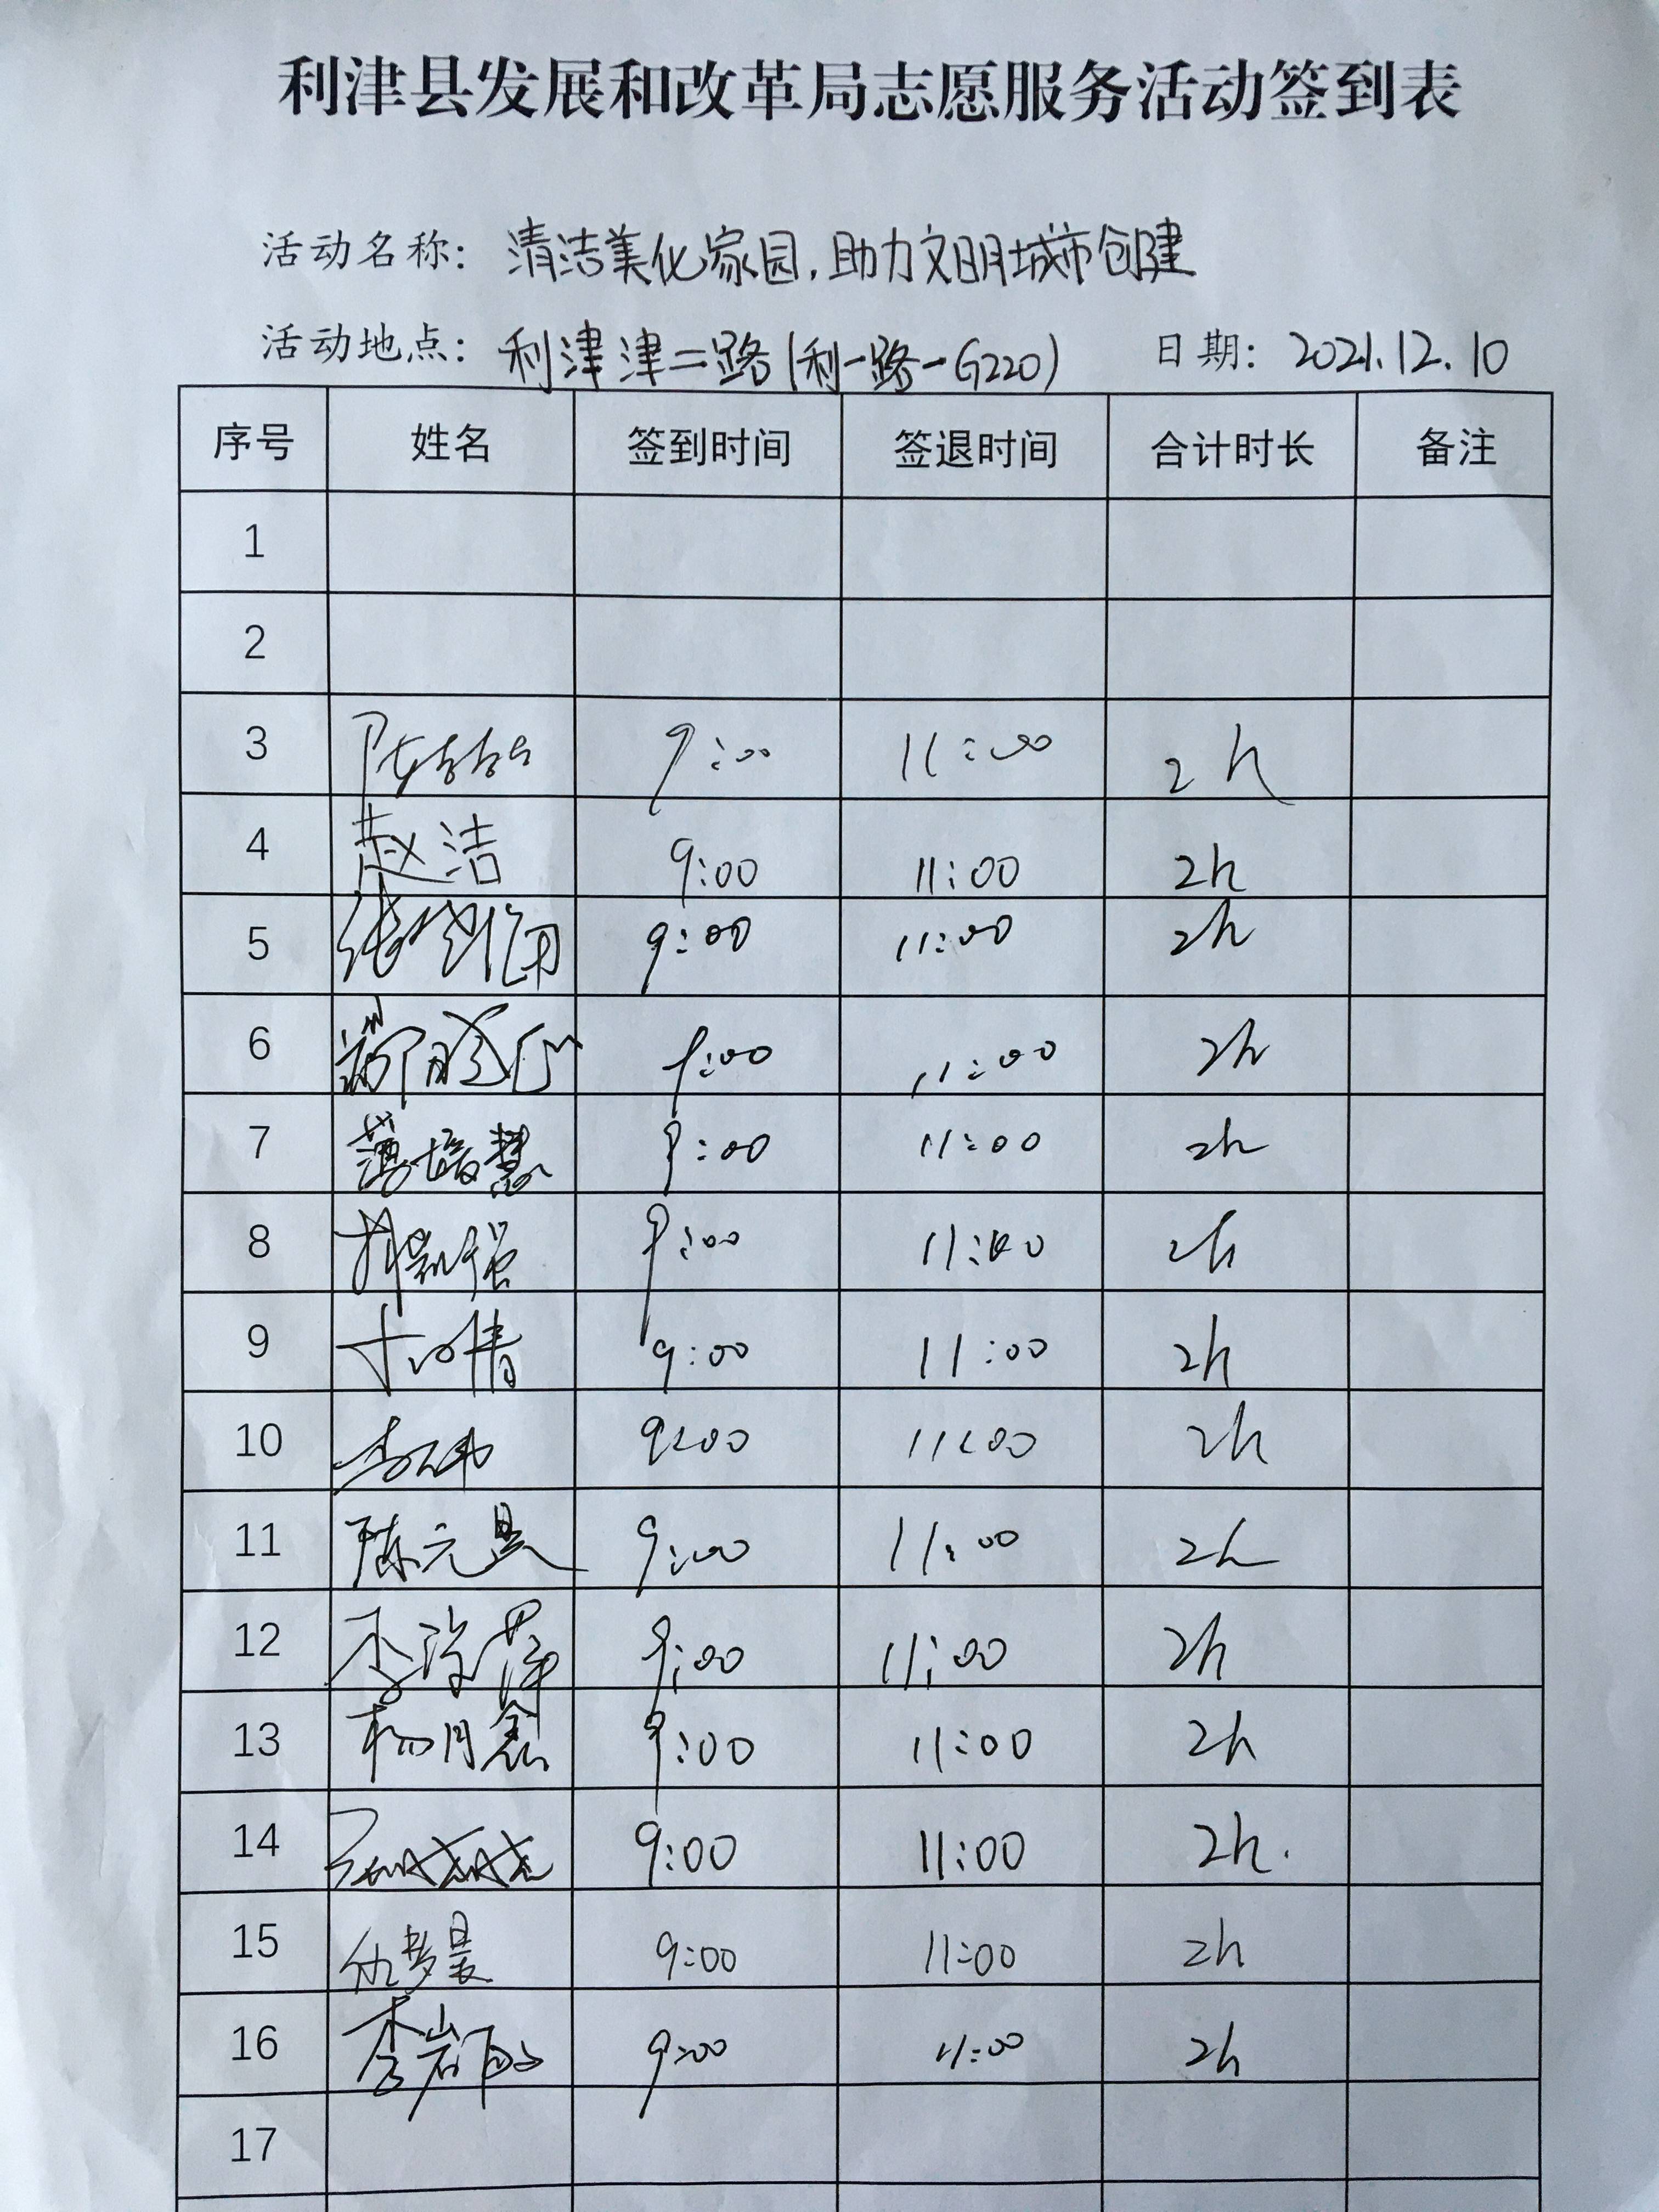 利津县发展和改革局志愿服务活动签到表
活动名称：清洁美化家园，助力文明城市创建
活动地点：利津津二路(利一路-G220) 日期：2021.12.10
序号 姓名 签到时间 签退时间 合计时长 备注
1
2
3 9:00 11:00 2h
4 赵洁 9:00 11:00 2h
5 9:00 11:00 2h
6 9:00 11:00 2h
7 薄培慧 9:00 11:00 2h
8 9:00 11:00 2h
9 9:00 11:00 2h
10 李伟 9:00 11:00 2h
11 陈元昊 9:00 11:00 2h
12 9:00 11:00 2h
13 9:00 11:00 2h
14 9:00 11:00 2h.
15 仇梦晨 9:00 11:00 2h
16 9:00 11:00 2h
17